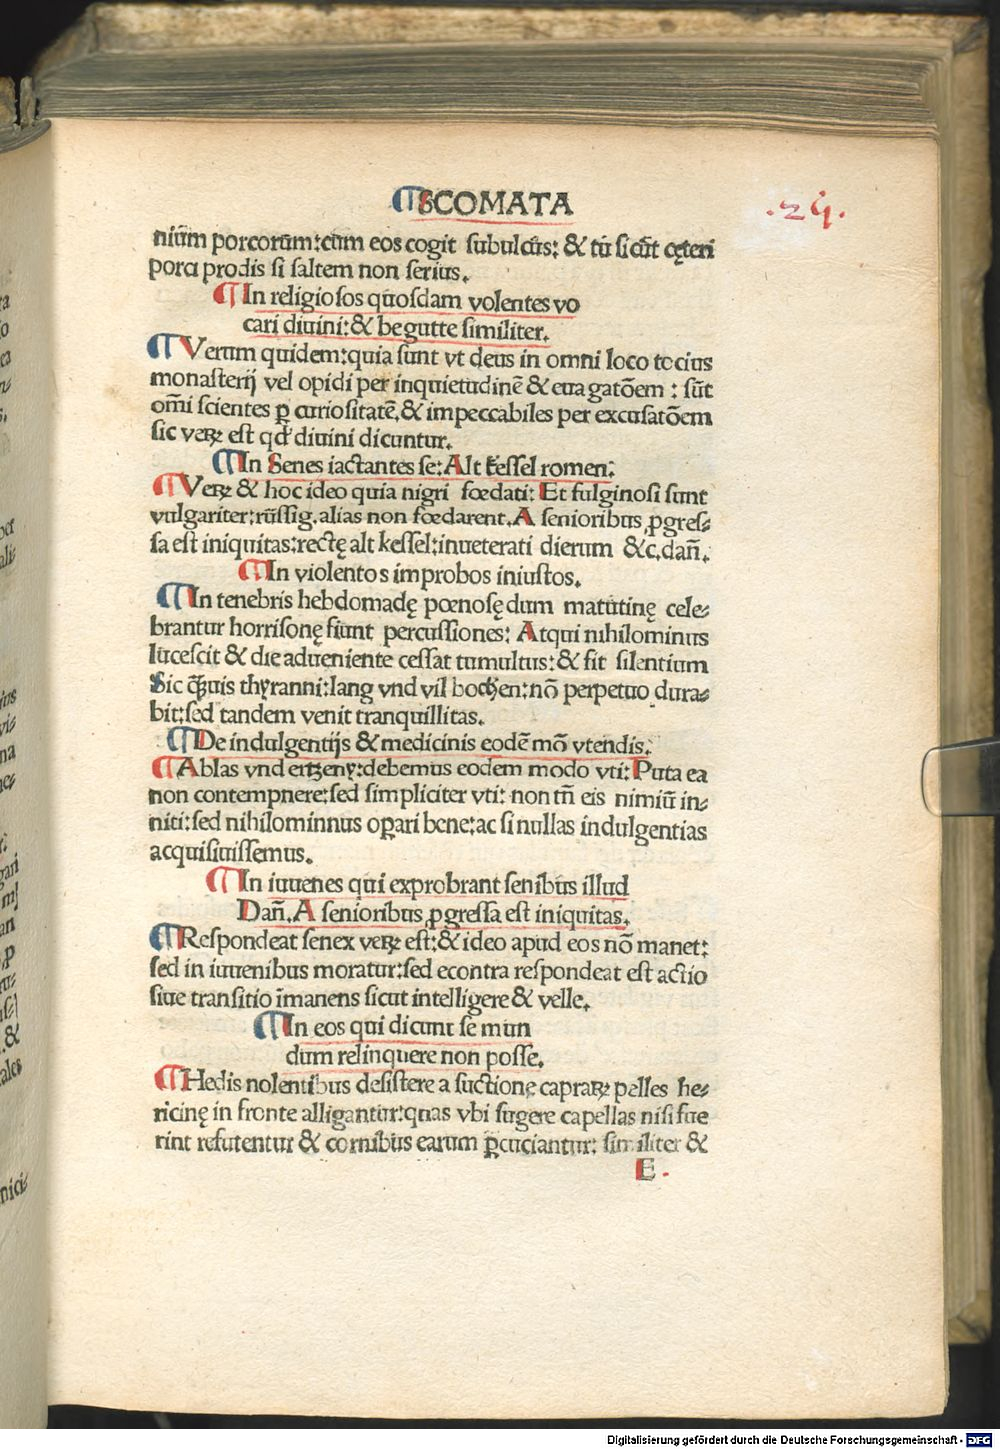 ¶SCOMATA .24.
niūm porcorum:cum eos cogit subulcus: & tū sicūt cęteri
porci prodis si saltem non serius.
¶In religiosos quosdam volentes vo
cari diuini:& begutte similiter.
¶Verum quidem:quia sunt vt deus in omni loco tocius
monasterij vel opidi per inquietudinē & euagatōem : sūt
om̄i scientes ꝑ curiositatē.& impeccabiles per excusatōem
sic veꝝ est qd' diuini dicuntur.
¶In Senes iactantes se:Alt kessel romen:
¶Veꝝ & hoc ideo quia nigri fœdati: Et fulginosi sunt
vulgariter:rüssig.alias non fœdarent.A senioribus ꝓgres⸗
sa est iniquitas:rectę alt kessel:inueterati dierum &c.dan̄.
¶In violentos improbos iniustos.
¶In tenebris hebdomadę pœnosę dum matutinę cele⸗
brantur horrisonę fiunt percussiones: Atqui nihilominus
lucescit & die adueniente cessat tumultus:& fit silentium
Sic q̄uis thyranni:lang vnd vil bochen:nō perpetuo dura⸗
bit:sed tandem venit tranquillitas.
¶De indulgentijs & medicinis eodē mō vtendis.
¶Ablas vnd ertzeny:debemus eodem modo vti: Puta ea
non contempnere:sed simpliciter vti: non tn̄ eis nimiū in⸗
niti:sed nihilominnus oꝑari bene:ac si nullas indulgentias
acquisiuissemus.
¶In iuuenes qui exprobrant senibus illud
Dan̄.A senioribus ꝓgressa est iniquitas.
¶Respondeat senex veꝝ est:& ideo apud eos nō manet:
sed in iuuenibus moratur:sed econtra respondeat est actio
siue transitio īmanens sicut intelligere & velle.
¶In eos qui dicunt se mun
dum relinquere non posse.
¶Hedis nolentibus desistere a suctionę capraꝝ pelles he⸗
ricinę in fronte alligantur:quas vbi sugere capellas nisi fue
rint refutentur & cornibus earum ꝑcuciantur: similiter &
E.
Digitalisierung gefördert durch die Deutsche Forschungsgemeinschaft - DFG